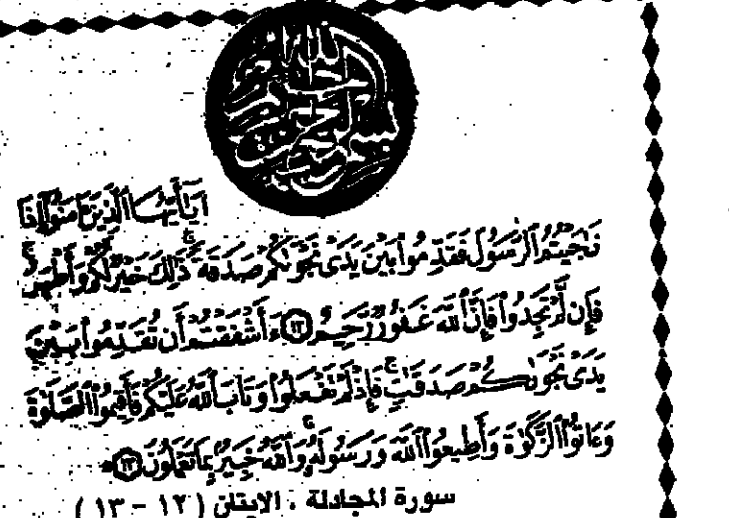 بسم الله الرحمن الرحيم
يَٰأَيُّهَا الَّذِينَ ءَامَنُوا إِذَا
نَٰجَيْتُمُ الرَّسُولَ فَقَدِّمُوا بَيْنَ يَدَىْ نَجْوَىٰكُمْ صَدَقَةً ذَٰلِكَ خَيْرٌ لَّكُمْ وَأَطْهَرُ
فَإِن لَّمْ تَجِدُوا فَإِنَّ اللَّهَ غَفُورٌ رَّحِيمٌ ١٢ ءَأَشْفَقْتُمْ أَن تُقَدِّمُوا بَيْنَ
يَدَىْ نَجْوَىٰكُمْ صَدَقَٰتٍ فَإِذْ لَمْ تَفْعَلُوا وَتَابَ اللَّهُ عَلَيْكُمْ فَأَقِيمُوا الصَّلَوٰةَ
وَءَاتُوا الزَّكَوٰةَ وَأَطِيعُوا اللَّهَ وَرَسُولَهُ وَاللَّهُ خَبِيرٌ بِمَا تَعْمَلُونَ ١٣
سورة المجادلة ، الايتان ( ١٢ - ١٣ )